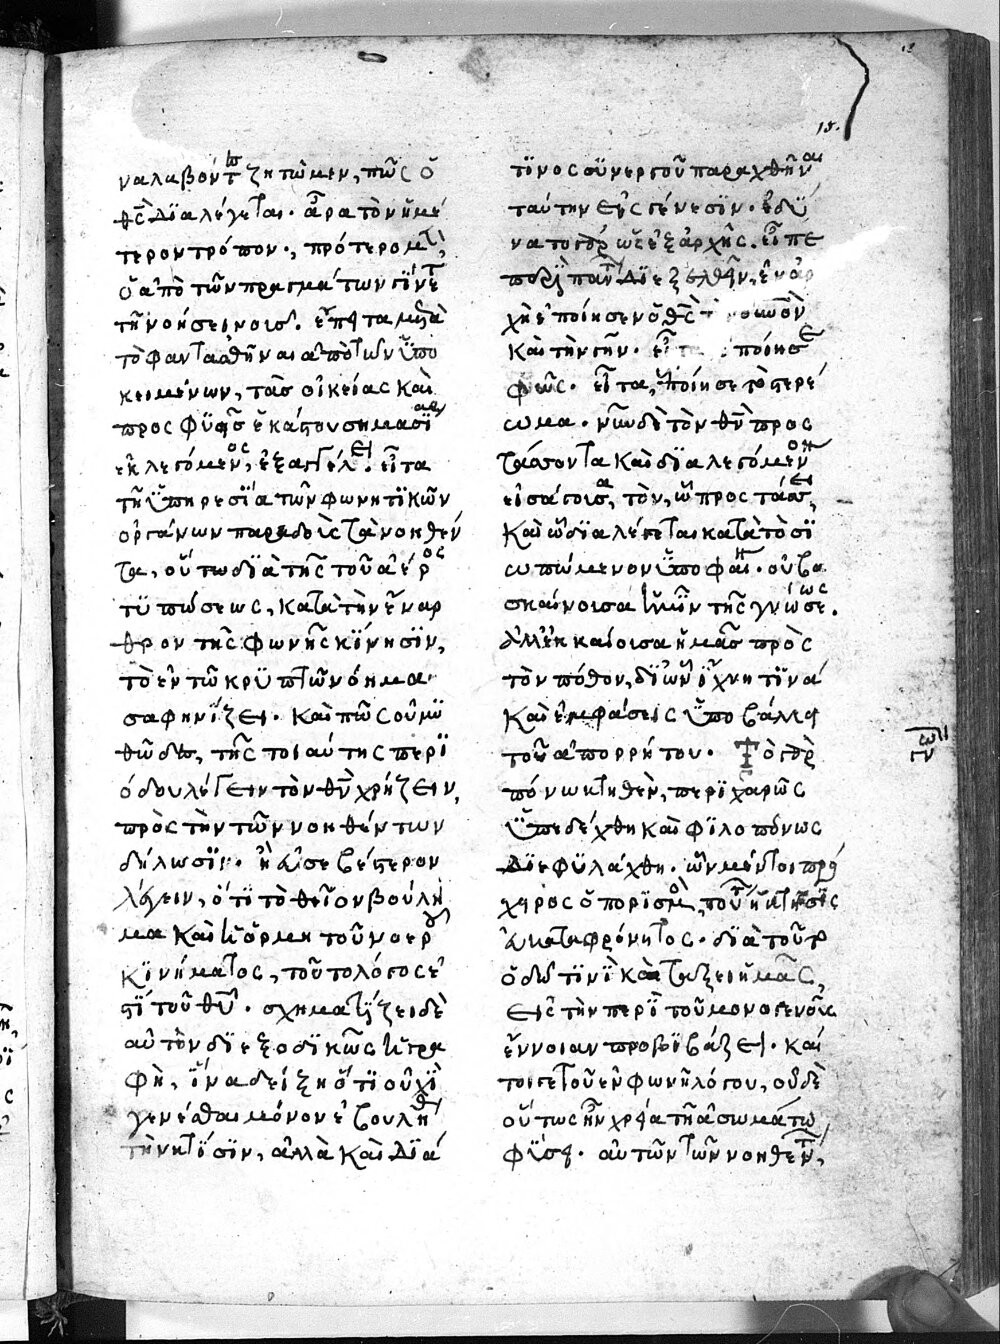 15.
ναλαβόντες ζητῶμεν, πῶς ὁ
θς διαλέγεται· ἆρα τὸν ἡμέ
τερον τρόπον·, πρότερον μὲν
ὁ ἀπὸ τῶν πραγμάτων γίνεται
τῆ νοήσει νοῖς. ἔπειτα μετὰ
τὸ φαντασθῆναι ἀπὸ τῶν ὑπο
κειμένων, τὰς οἰκείας καὶ
προς φυεῖς ἑκάστου σημασίας
ἐκλεγόμενος, ἐξαγγέλει. εἶτα
τῆ ὑπηρεσία τῶν φωνητικῶν
ὀργάνων παραδοὺς τὰ νοηθέν
τα, οὕτω διὰ τῆς τοῦ ἀέρος
τυπώσεως, κατὰ τὴν ἔναρ
θρον τῆς φωνῆς κίνησιν,
τὸ ἐν τῶ κρυπτῶ νόημα
σαφηνίζει· καὶ πῶς οὐ μυ
θῶδες, τῆς τοιαύτης περι
όδου λέγειν τὸν θν χρήζειν,
πρὸς τὴν τῶν νοηθέντων
δήλωσιν· ἢ εὐσεβέστερον
λέγειν, ὅτι τὸ θεῖον βούλη
μα καὶ ἡ ὁρμὴ τοῦ νοεροῦ
κινήματος, τοῦτο λόγος ἐ
στί τοῦ θυ· σχηματίζει δὲ
αὐτὸν διεξοδικῶς ἡ γρα
φὴ, ἵνα δείξη ὅτι οὐχὶ
γενέσθαι μόνον ἐβουλήθη
τὴν κτίσιν, ἀλλὰ καὶ διά
τινος συνεργοῦ παραχθῆναι
ταύτην εἰς γένεσιν· ἐδύ
νατο γὰρ ὡς ἐξ ἀρχῆς. εἶπε
περὶ πάντων διεξελθεῖν, ἐν ἀρ
χῆ ἐποίησεν ὁ θς τὸν οὐνὸν
καὶ τὴν γῆν· εἶτα ἐποίησε
φῶς· εἶτα, ἐποίησε τὸ στερέ
ωμα· νῦν δὲ τὸν θν προς
τάσσοντα καὶ διαλεγόμενον
εἰσάγουσα, τὸν, ᾧ προστάσσει,
καὶ ᾧ διαλέγεται κατὰ τὸ σι
ωπώμενον ὑποφαίνει· οὐ βα
σκαίνουσα ἡμῖν τῆς γνώσεως.
ἀλλ' ἐκκαίουσα ἡμᾶς πρὸς
τὸν πόθον, δι' ὧν ἴχνη τινά
καὶ ἐμφάσεις ὑποβάλλει
τοῦ ἀπορρήτου· Τὸ γὰρ
πόνω κτηθὲν, περιχαρῶς
ὑπεδέχθη καὶ φιλοπόνως
διεφυλάχθη· ὧν μέντοι πρό
χειρος ὁ πορισμὸς, τούτων ἡ κτῆσις
εὐκαταφρόνητος· διὰ τοῦτο
ὁδῶ τινὶ καὶ τάξει ἡμᾶς,
εἰς τὴν περὶ τοῦ μονογενοῦς
ἔννοιαν προβιβάζει· καί
τοιγε τοῦ ἐν φωνῆ λόγου, οὐδὲ
οὕτως ἦν χρεία τῆ ἀσωμάτω
φύσει· αὐτῶν τῶν νοηθέντων,